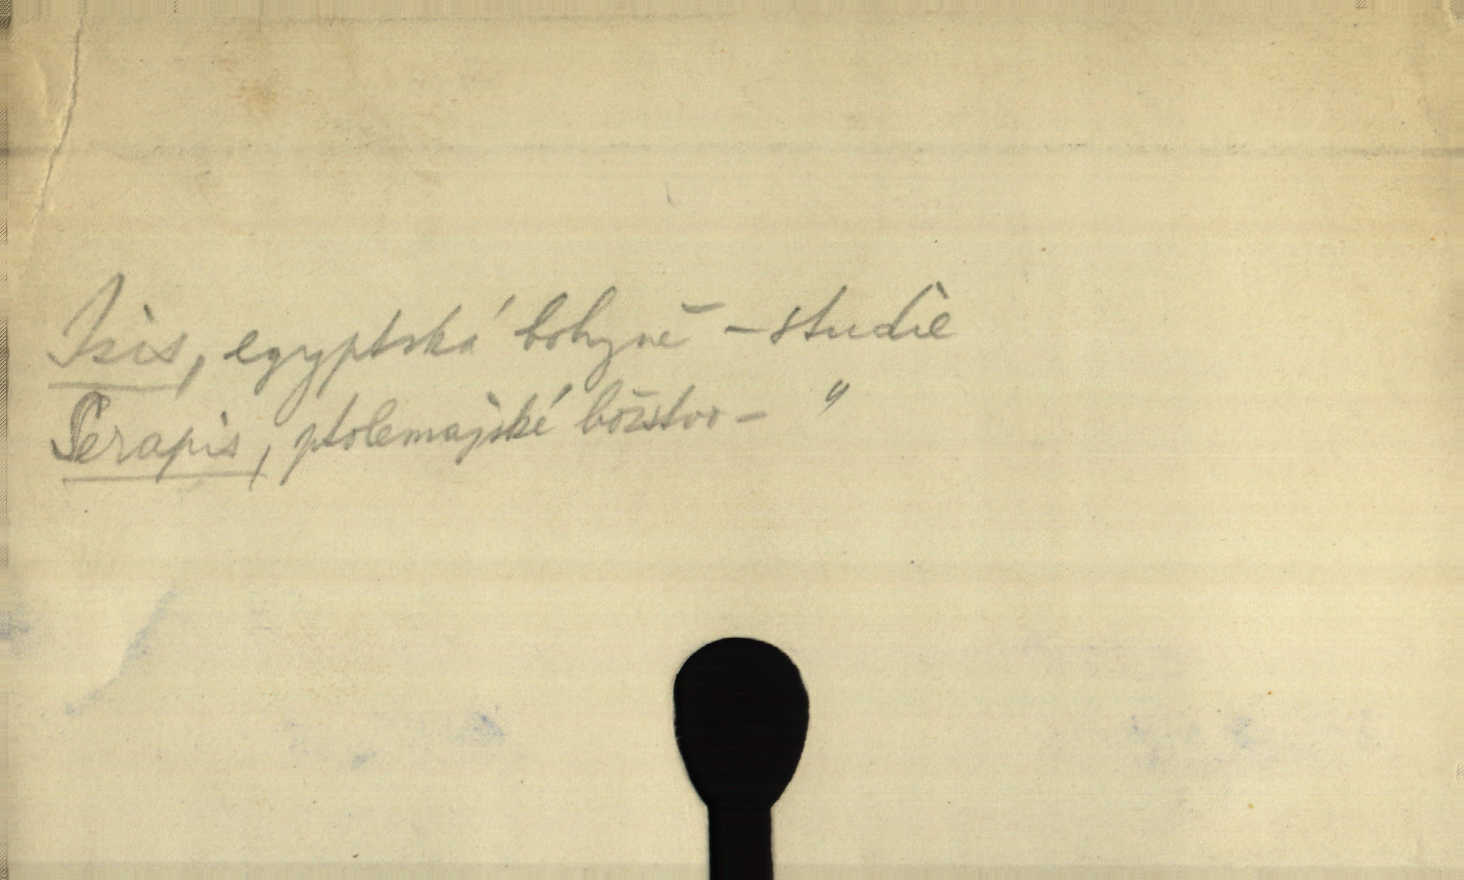 Isis, egyptská bohyně – studie
Serapis, ptolemajské božstvo – "